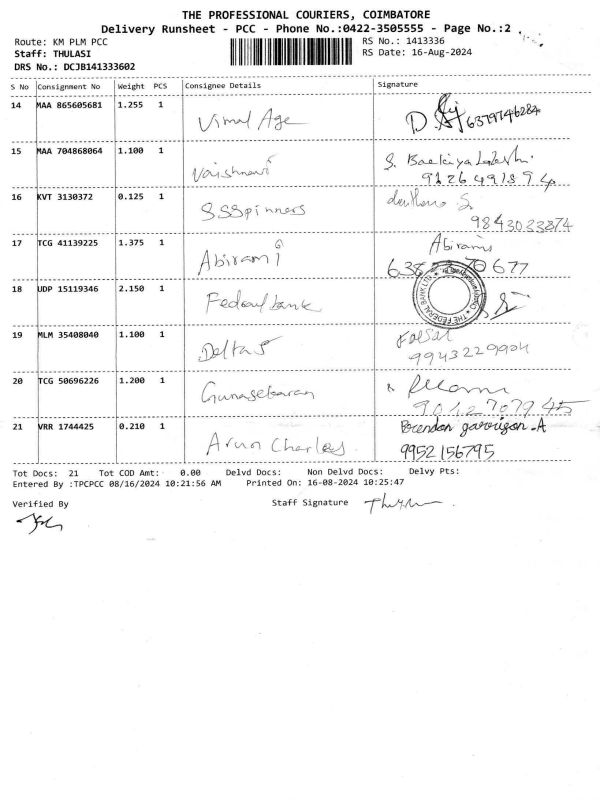 THE PROFESSIONAL COURIERS, COIMBATORE
Delivery Runsheet - PCC - Phone No.:0422-3505555 - Page No.:2
Route: KM PLM PCC RS No.: 1413336
Staff: THULASI RS Date: 16-Aug-2024
DRS No.: DCJB141333602
S No Consignment No Weight PCS Consignee Details Signature
14 MAA 865605681 1.255 1 Vimal Age 6379746284
15 MAA 704868064 1.100 1 Vaishnavi S.
9126491394
16 KVT 3130372 0.125 1 SSSpinners
9843033874
17 TCG 41139225 1.375 1 Abirami Abirami
70677
18 UDP 15119346 2.150 1 Federal bank THE FEDERAL BANK LTD
19 MLM 35408040 1.100 1 Delta 5 Faisal
9943229904
20 TCG 50696226 1.200 1 Gunasekaran
21 VRR 1744425 0.210 1 Arun Charles Brendon garrison.A
9952156795
Tot Docs: 21 Tot COD Amt: 0.00 Delvd Docs: Non Delvd Docs: Delvy Pts:
Entered By :TPCPCC 08/16/2024 10:21:56 AM Printed On: 16-08-2024 10:25:47
Verified By Staff Signature